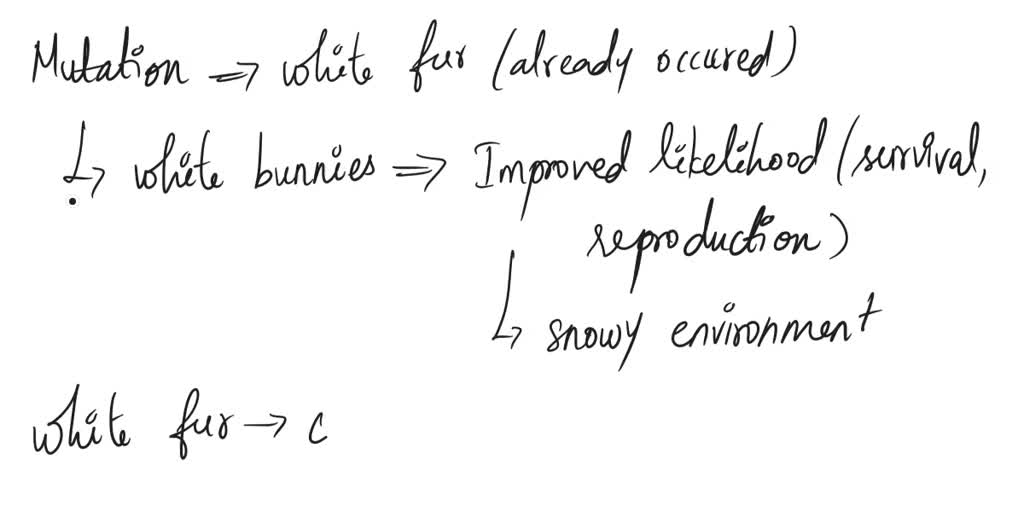 Mutation => white fur (already occured)
↳ white bunnies => Improved likelihood (survival,
reproduction)
↳ snowy environment
white fur → c